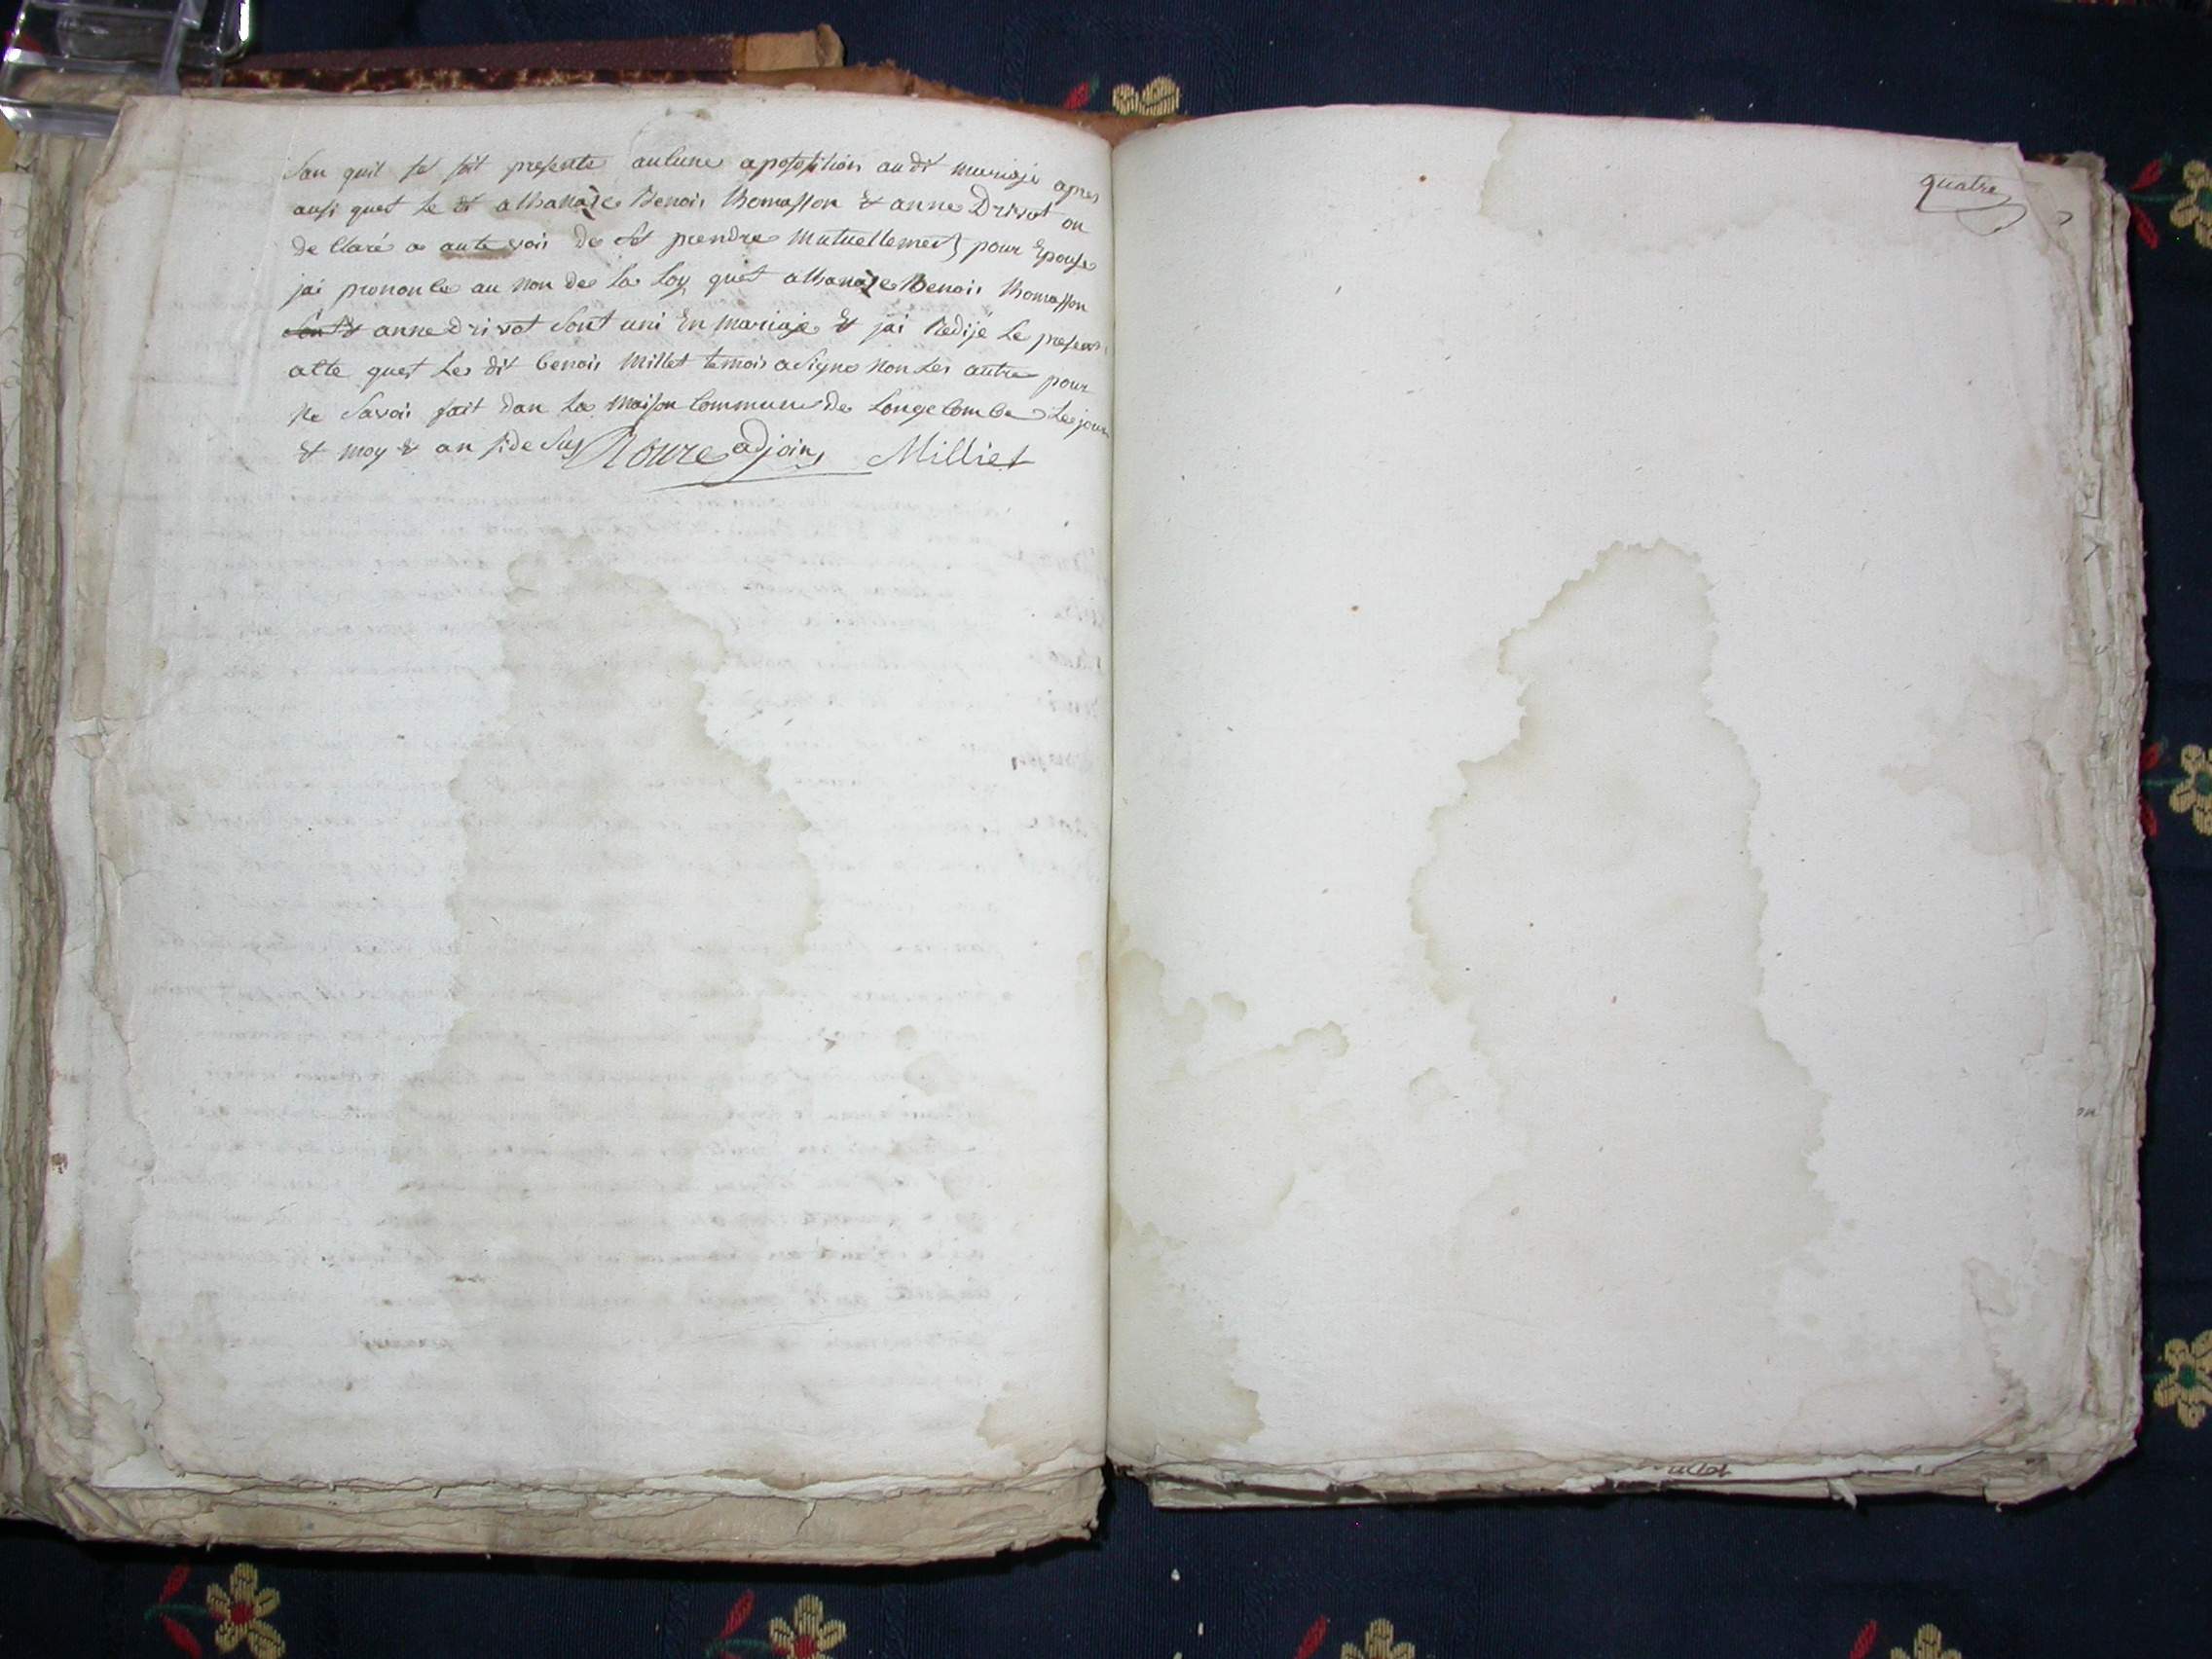 San quil se soit presente aucune aposotition audit mariaje apres
ausi quet le dit athanase Benois thomasson & anne Drivet on
de Claré a aute vois de se prendre Mutuellement pour Epouse
jai prononce au non de la Loy quet athanase Benois thomasson
& anne Drivet Sont uni En mariaje & jai Redijé le present
acte quet les dit benois Millet temois a Signe Non Les autre pour
Ne Savoir fait dan la maison Commune de Longecombe Le jour
& moy & an side Sus Roure adjoin Milliet
quatre